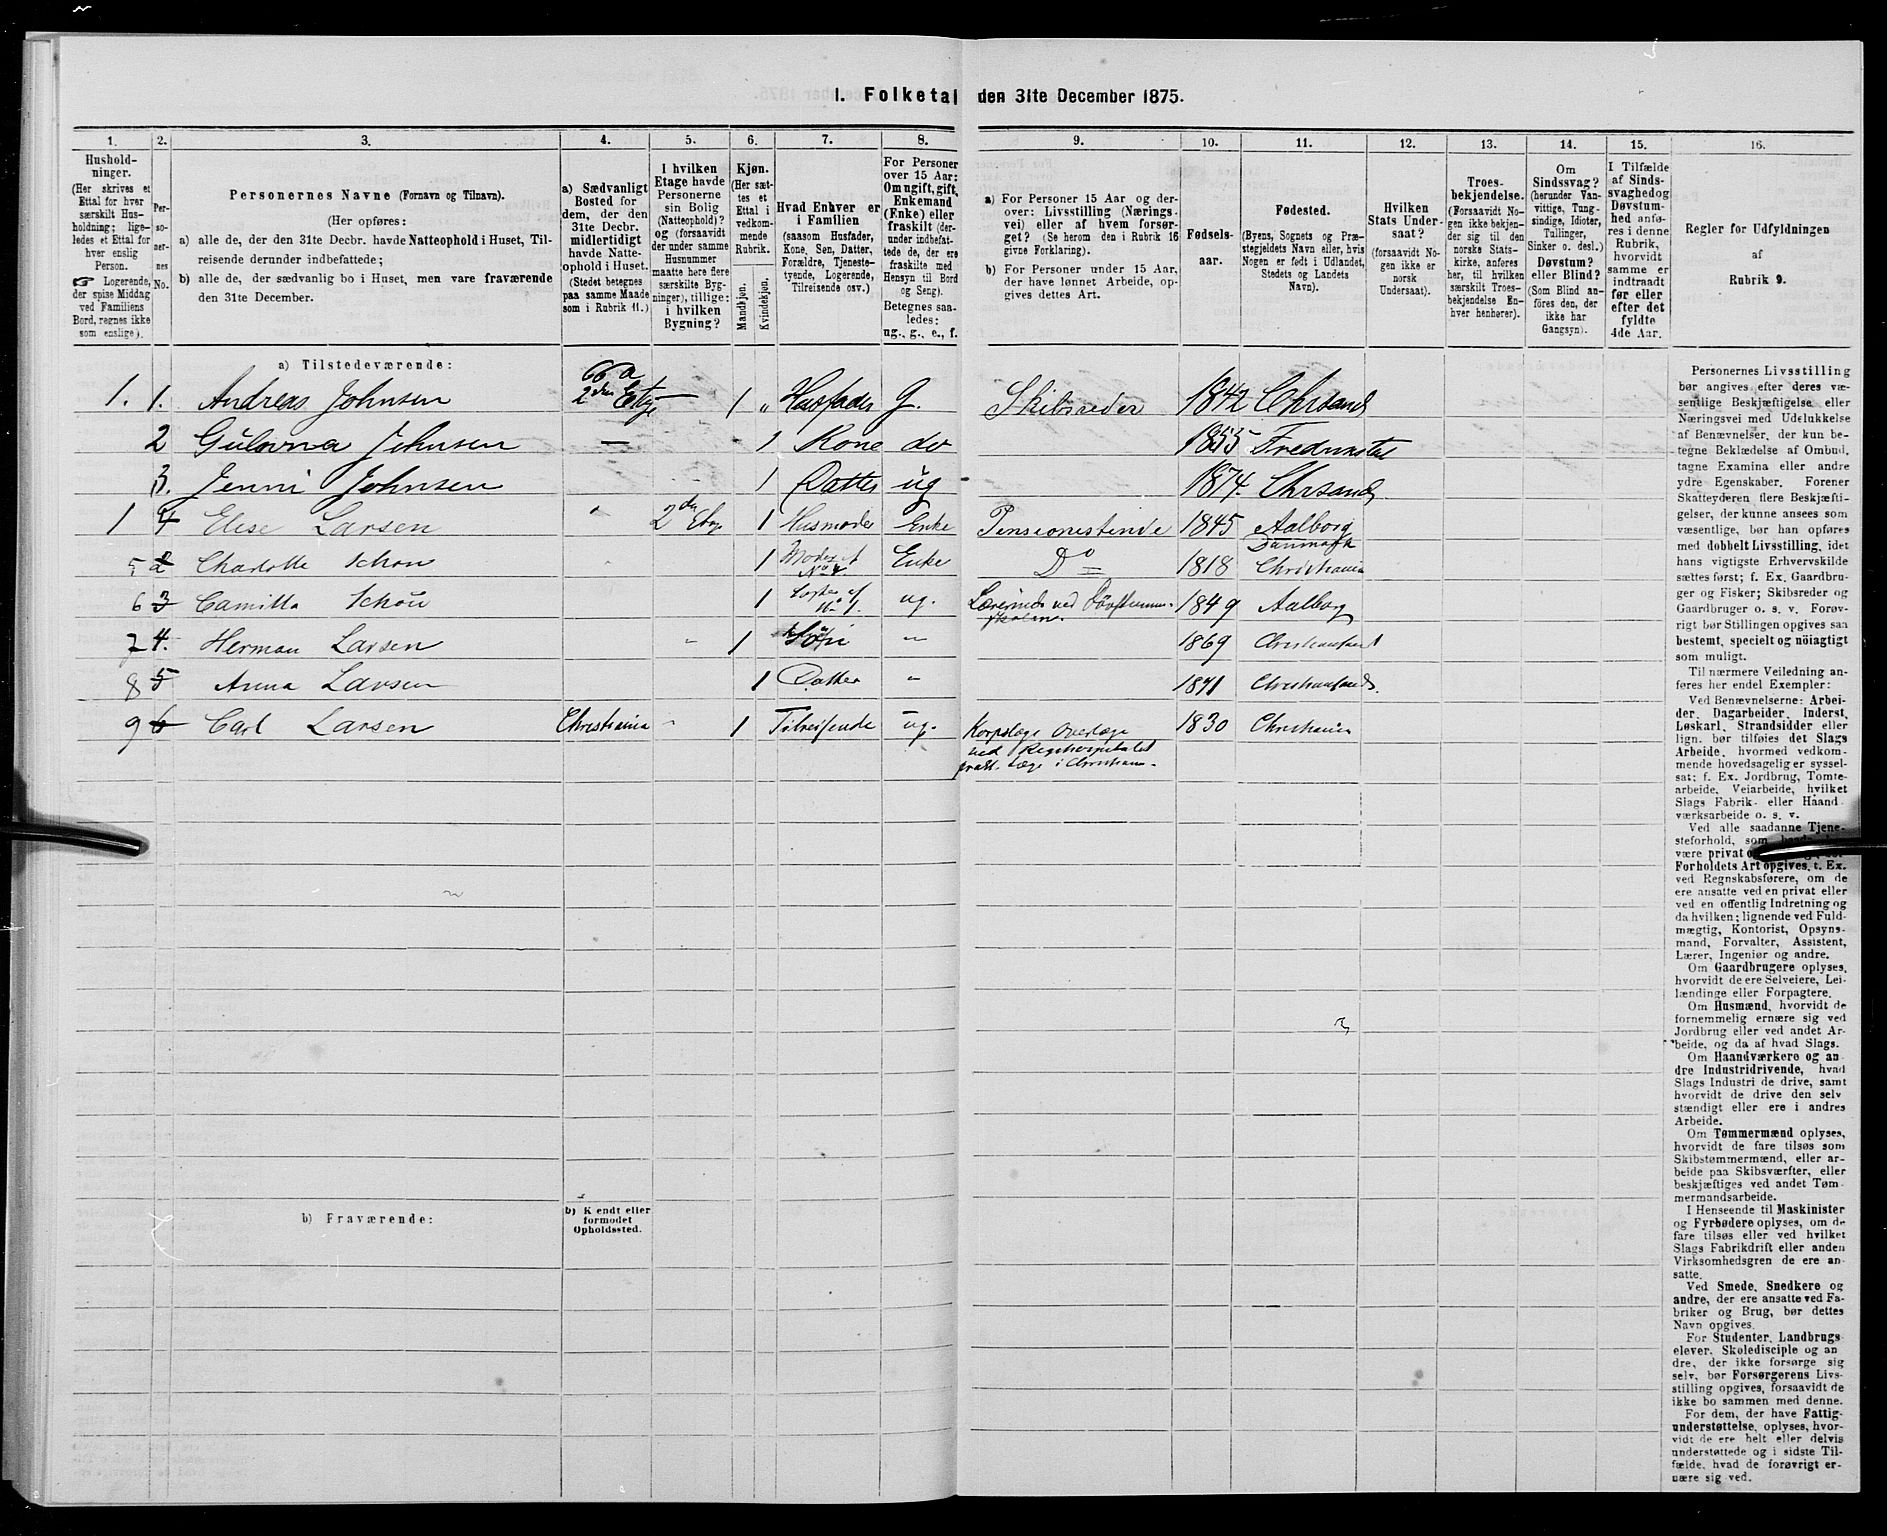 1. Folketal den 31te December 1875.
1. 2. 3. 4. 5. 6. 7. 8. 9. 10. 11. 12. 13. 14. 15. 16.
Hushold-
ninger.
(Her skrives et
Ettal for hver
særskilt Hus-
holdning; lige-
ledes et Ettal for
hver enslig
Person.
☞ Logerende,
der spise Middag
ved Familiens
Bord, regnes ikke
som enslige).
Per-
so-
ner-
nes
No.
Personernes Navne (Fornavn og Tilnavn).
(Her opføres:
a) alle de, der den 31te Decbr. havde Natteophold i Huset, Til-
reisende derunder indbefattede;
b) alle de, der sædvanlig bo i Huset, men vare fraværende
den 31te December.
a) Sædvanligt
Bosted for
dem, der den
31te Decbr.
midlertidigt
havde Natte-
ophold i Huset.
(Stedet betegnes
paa samme Maade
som i Rubrik 11.)
I hvilken
Etage havde
Personerne
sin Bolig
(Natteophold)?
og (forsaavidt
der under samme
Husnummer
maatte høre flere
særskilte Byg-
ninger), tillige:
i hvilken
Bygning?
Kjøn.
(Her sæt-
tes et
Ettal i
vedkom-
mende
Rubrik.
Mandkjøn.
Kvindekjøn.
Hvad Enhver er
i Familien
(saasom Husfader,
Kone, Søn, Datter,
Forældre, Tjeneste-
tyende, Logerende,
Tilreisende osv.)
For Personer
over 15 Aar:
Om ugift, gift,
Enkemand
(Enke) eller
fraskilt (der-
under indbefat-
tede de, der ere
fraskilte med
Hensyn til Bord
og Seng).
Betegnes saa-
ledes:
ug., g., e., f.
a) For Personer 15 Aar og der-
over: Livsstilling (Nærings-
vei) eller af hvem forsør-
get? (Se herom den i Rubrik 16
givne Forklaring).
b) For Personer under 15 Aar,
der have lønnet Arbeide, op-
gives dettes Art.
Fødsels-
aar.
Fødested.
(Byens, Sognets og Præ-
stegjeldets Navn eller, hvis
Nogen er født i Udlandet,
Stedets og Landets
Navn).
Hvilken
Stats Under-
saat?
(forsaavidt No-
gen ikke er
norsk
Undersaat).
Troes-
bekjendelse.
(Forsaavidt No-
gen ikke bekjen-
der sig til den
norske Stats-
kirke, anføres
her, til hvilken
særskilt Troes-
bekjendelse En-
hver henhører).
Om
Sindssvag?
(herunder Van-
vittige, Tung-
sindige, Idioter,
Tullinger,
Sinker o. desl.)
Døvstum?
eller Blind?
(Som Blind an-
føres den, der
ikke har
Gangsyn).
I Tilfælde
af Sinds-
svaghed og
Døvstum-
hed anfø-
res i denne
Rubrik,
hvorvidt
samme er
indtraadt
før eller
efter det
fyldte
4de Aar.
Regler for Udfyldningen
af
Rubrik 9.
a) Tilstedeværende:
66 a
1. 1. Andreas Johnsen 2den Etage 1 " Husfader G. Skibsreder 1842 Chrsand
2 Gulovna Johnsen — 1 Kone do 1855 Fredriksstad
3. Jenni Johnsen 1 Datter ug 1874. Chrsand
1 4 Elise Larsen 2de Etag 1 Husmoder Enke Pensionestinde 1845 Aalborg
Danmark
5 2 Charlotte Schøn 1 Moder af Enke Do 1818 Christiania
No 4.
6 3 Camilla Schøn 1 Søster af ug. Lærerinde ved Døvstumme- 1849 Aalborg
No 1. skolen.
7 4. Herman Larsen " 1 Søn " 1869 Christiansand
8 5 Anna Larsen 1 Datter " 1871 Christiansand.
9 6 Carl Larsen Christiania " 1 Tilreisende ug. Korpslæge Overlæge 1830 Christiania
ved Rigshospitalet
prakt. Læge i Christiania
b) Fraværende:
b) Kjendt eller
formodet
Opholdssted.
Personernes Livsstilling
bør angives efter deres væ-
sentlige Beskjæftigelse eller
Næringsvei med Udelukkelse
af Benævnelser, der kun be-
tegne Beklædelse af Ombud,
tagne Examina eller andre
ydre Egenskaber. Forener
Skatteyderen flere Beskjæfti-
gelser, der kunne ansees som
væsentlige, bør han opføres
med dobbelt Livsstilling, idet
hans vigtigste Erhvervskilde
sættes først; f. Ex. Gaardbru-
ger og Fisker; Skibsreder og
Gaardbruger o. s. v. Forøv-
rigt bør Stillingen opgives saa
bestemt, specielt og nöiagtigt
som muligt.
Til nærmere Veiledning an-
føres her endel Exempler:
Ved Benævnelserne: Arbei-
der, Dagarbeider, Inderst,
Løskarl, Strandsidder eller
lign. bør tilføies det Slags
Arbeide, hvormed vedkom-
mende hovedsagelig er syssel-
sat; f. Ex. Jordbrug, Tomte-
arbeide, Veiarbeide, hvilket
Slags Fabrik- eller Haand-
værksarbeide o. s. v.
Ved alle saadanne Tjene-
steforhold, som
være privat
Forholdets Art opgives, t. Ex.
ved Regnskabsførere, om de
ere ansatte ved en privat eller
ved en offentlig Indretning og
da hvilken; lignende ved Fuld-
mægtig, Kontorist, Opsyns-
mand, Forvalter, Assistent,
Lærer, Ingeniør og andre.
Om Gaardbrugere oplyses,
hvorvidt de ere Selveiere, Lei-
lændinge eller Forpagtere.
Om Husmænd, hvorvidt de
fornemmelig ernære sig ved
Jordbrug eller ved andet Ar-
beide, og da af hvad Slags.
Om Haandværkere og an-
dre Industridrivende, hvad
Slags Industri de drive, samt
hvorvidt de drive den selv-
stændigt eller ere i andres
Arbeide.
Om Tømmermænd oplyses,
hvorvidt de fare tilsøs som
Skibstømmermænd, eller ar-
beide paa Skibsværfter, eller
beskjæftiges ved andet Tøm-
mermandsarbeide.
I Henseende til Maskinister
og Fyrbødere oplyses, om de
fare tilsøs eller ved hvilket
Slags Fabrikdrift eller anden
Virksomhedsgren de ere an-
satte.
Ved Smede, Snedkere og
andre, der ere ansatte ved Fa-
briker og Brug, bør dettes
Navn opgives.
For Studenter, Landbrugs-
elever, Skoledisciple og an-
dre, der ikke forsørge sig
selv, bør Forsørgerens Livs-
stilling opgives, forsaavidt de
ikke bo sammen med denne.
For dem, der have Fattig-
understøttelse, oplyses, hvor-
vidt de ere helt eller delvis
understøttede og i sidste Til-
fælde, hvad de forøvrigt er-
nære sig ved.